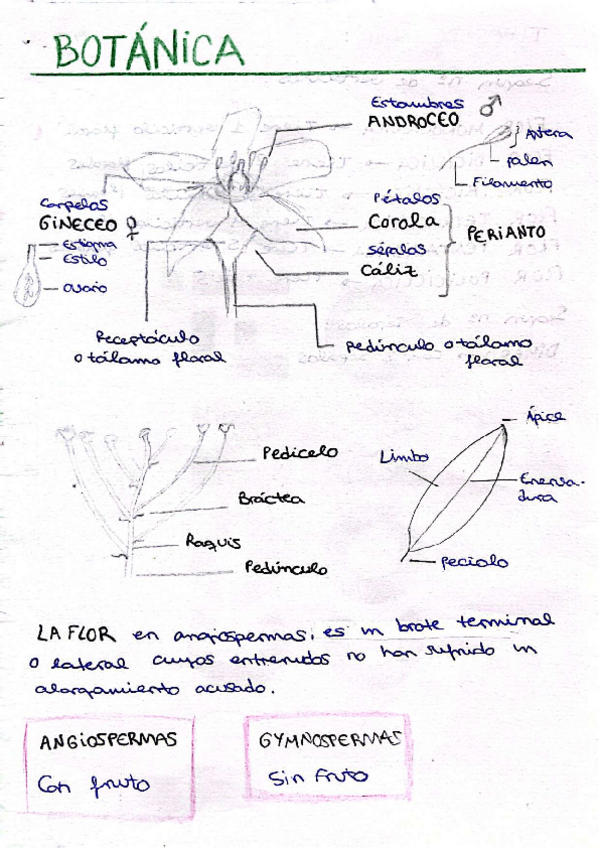 BOTÁNICA
Estambres
ANDROCEO ♂
Antera
polen
Filamento
Carpelos
GINECEO ♀
Estigma
Estilo
Ovario
Pétalos
Corola
sépalos
Cáliz
PERIANTO
Receptáculo
o tálamo floral
Pedúnculo o tálamo
floral
Pedicelo
Bráctea
Raquis
Pedúnculo
Ápice
Limbo
Enerva-
dura
peciolo
LA FLOR en angiospermas, es un brote terminal
o lateral cuyos entrenudos no han sufrido un
alargamiento acusado.
ANGIOSPERMAS
Con fruto
GYMNOSPERMAS
Sin Fruto